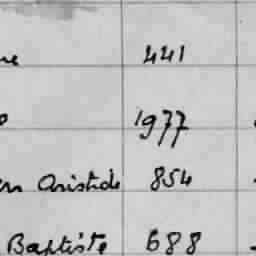 441
1977
Aristide 854
Baptiste 688